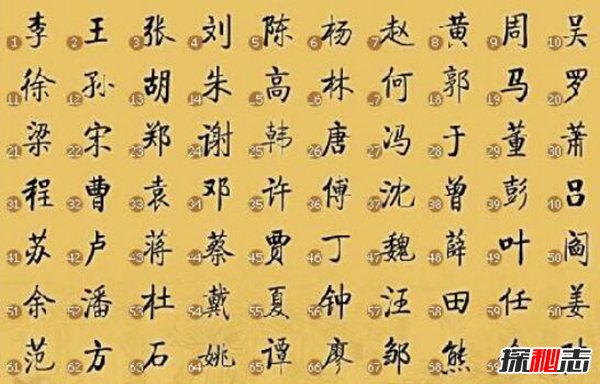 1 李 2 王 3 张 4 刘 5 陈 6 杨 7 赵 8 黄 9 周 10 吴
11 徐 12 孙 13 胡 14 朱 15 高 16 林 17 何 18 郭 19 马 20 罗
21 梁 22 宋 23 郑 24 谢 25 韩 26 唐 27 冯 28 于 29 董 30 萧
31 程 32 曹 33 袁 34 邓 35 许 36 傅 37 沈 38 曾 39 彭 40 吕
41 苏 42 卢 43 蒋 44 蔡 45 贾 46 丁 47 魏 48 薛 49 叶 50 阎
51 余 52 潘 53 杜 54 戴 55 夏 56 钟 57 汪 58 田 59 任 50 姜
61 范 62 方 63 石 64 姚 65 谭 66 廖 67 邹 68 熊
探秘志